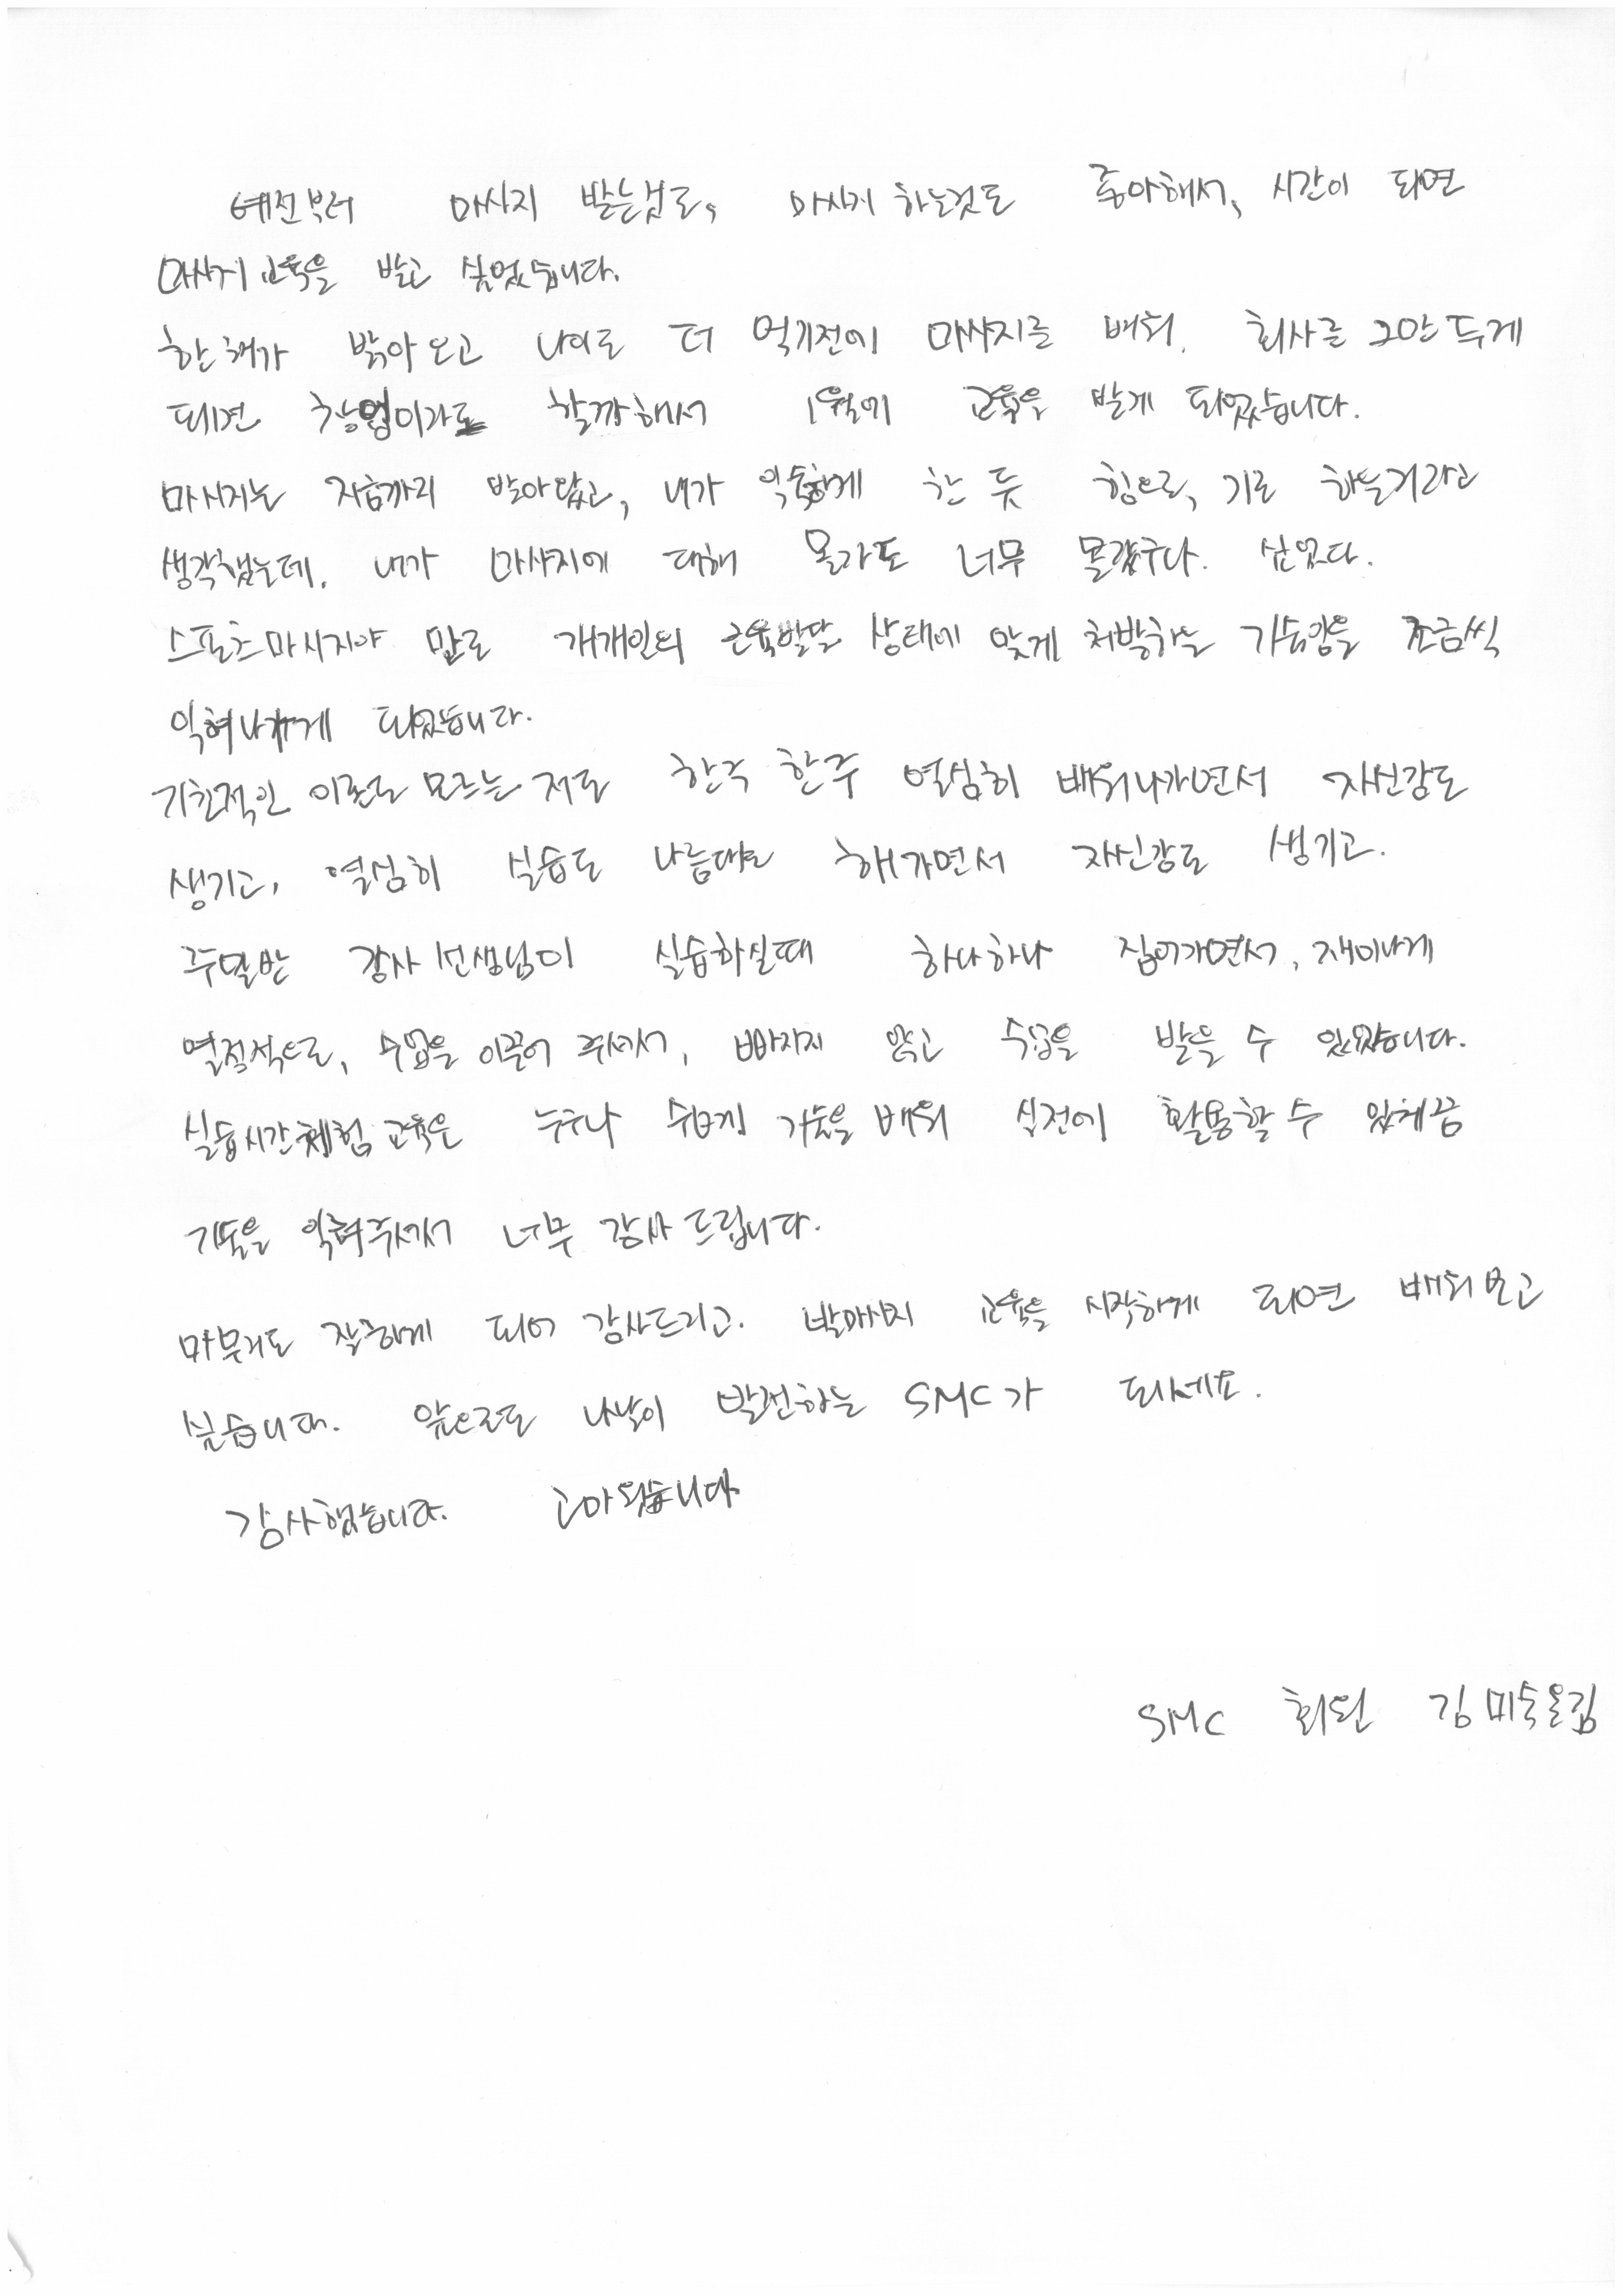 예전부터 마사지 받는것도, 마사지 하는것도 좋아해서, 시간이 되면
마사지 교육을 받고 싶었습니다.
한해가 밝아오고 나이도 더 먹기전에 마사지를 배워, 회사를 그만두게
되면 창업이라도 할까해서 1월에 교육을 받게 되었습니다.
마사지는 지금까지 받아왔고, 내가 익숙하게 한 듯 힘으로, 기로 하는거라고
생각했는데, 내가 마사지에 대해 몰라도 너무 몰랐구나. 싶었다.
스포츠마사지야 말로 개개인의 근육발달 상태에 맞게 처방하는 기술임을 조금씩
익혀나가게 되었습니다.
기초적인 이론도 모르는 저도 한주 한주 열심히 배워나가면서 자신감도
생기고, 열심히 실습도 나름대로 해가면서 자신감도 생기고.
주말반 강사선생님이 실습하실때 하나하나 집어가면서, 재미나게
열정적으로, 수업을 이끌어 주셔서, 빠지지 않고 수업을 받을 수 있었습니다.
실습시간체험교육은 누구나 쉽게 기술을 배워 실전에 활용할 수 있게끔
기술을 익혀주셔서 너무 감사드립니다.
마무리도 잘하게 되어 감사드리고. 발마사지 교육을 시작하게 되면 배워보고
싶습니다. 앞으로도 나날이 발전하는 SMC가 되세요.
감사했습니다. 고마웠습니다
SMC 회원 김미숙올림